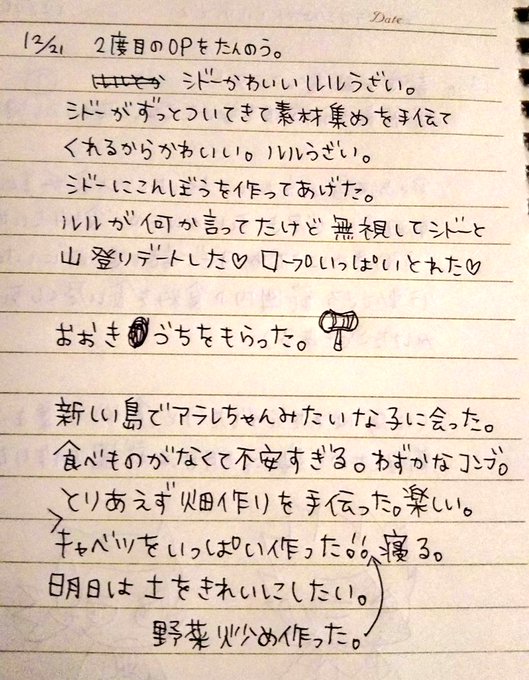 Date
12/21 2度目のOPをたんのう。
シドーかわいいルルうざい。
シドーがずっとついてきて素材集めを手伝て
くれるからかわいい。ルルうざい。
シドーにこんぼうを作ってあげた。
ルルが何か言ってたけど無視してシドーと
山登りデートした♡ロープいっぱいとれた♡
おおきづちをもらった。
新しい島でアラレちゃんみたいな子に会った。
食べものがなくて不安すぎる。わずかなコンブ。
とりあえず畑作りを手伝った。楽しい。
キャベツをいっぱい作った!!寝る。
明日は土をきれいにしたい。
野菜炒め作った。